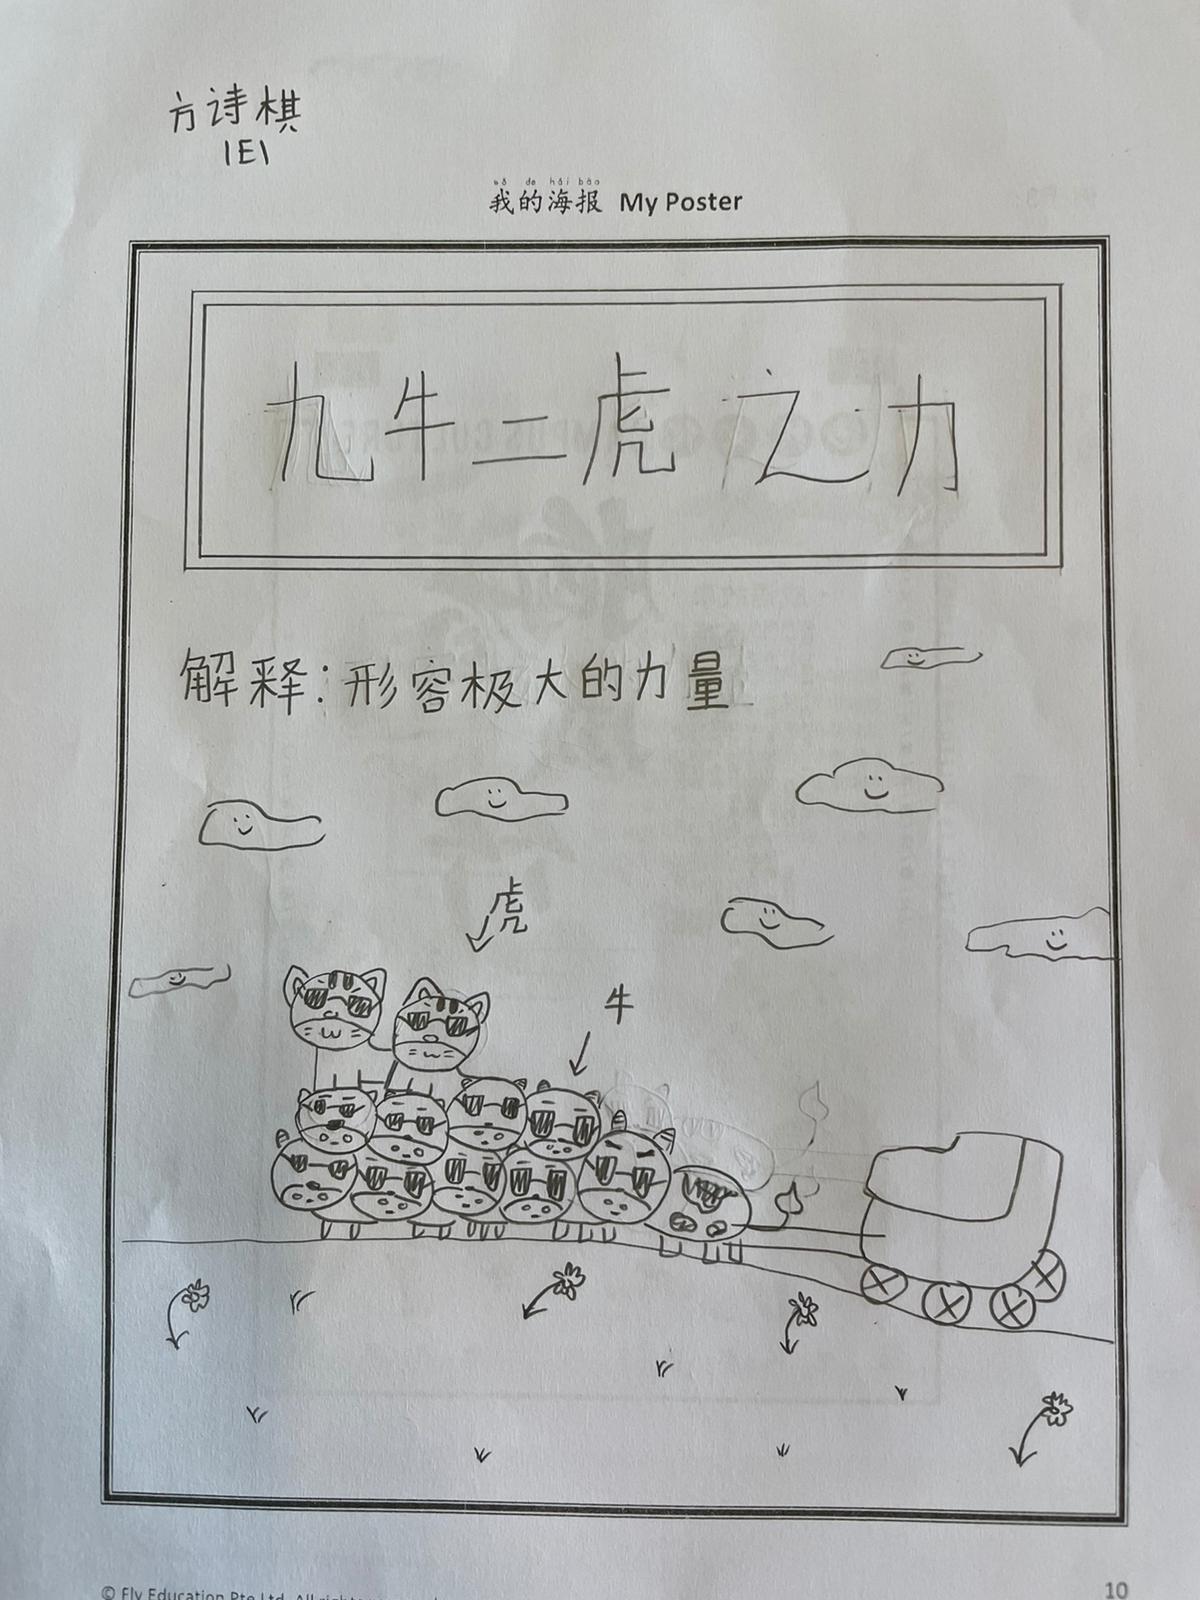 方诗棋
1E1
wǒ de hǎi bào
我的海报 My Poster
九牛二虎之力
解释：形容极大的力量
虎
牛
© Fly Education Pte Ltd. All right
10